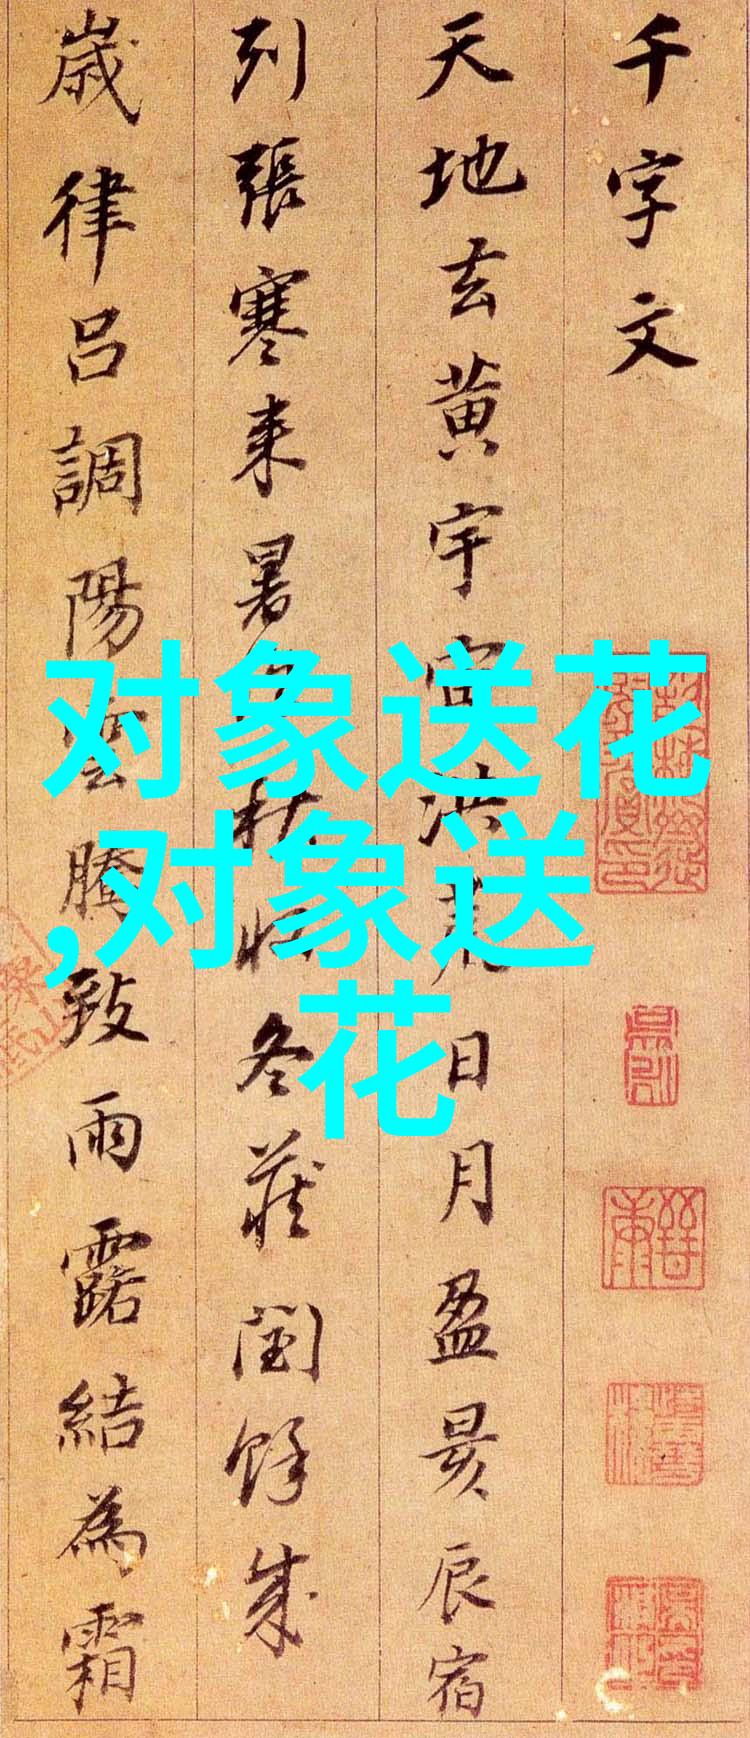 千字文
天地玄黄宇宙洪荒日月盈昃辰宿
列張寒来暑往秋收冬藏閏餘成
歲律吕調陽雲騰致雨露結為霜
对象送花
,对象送
花